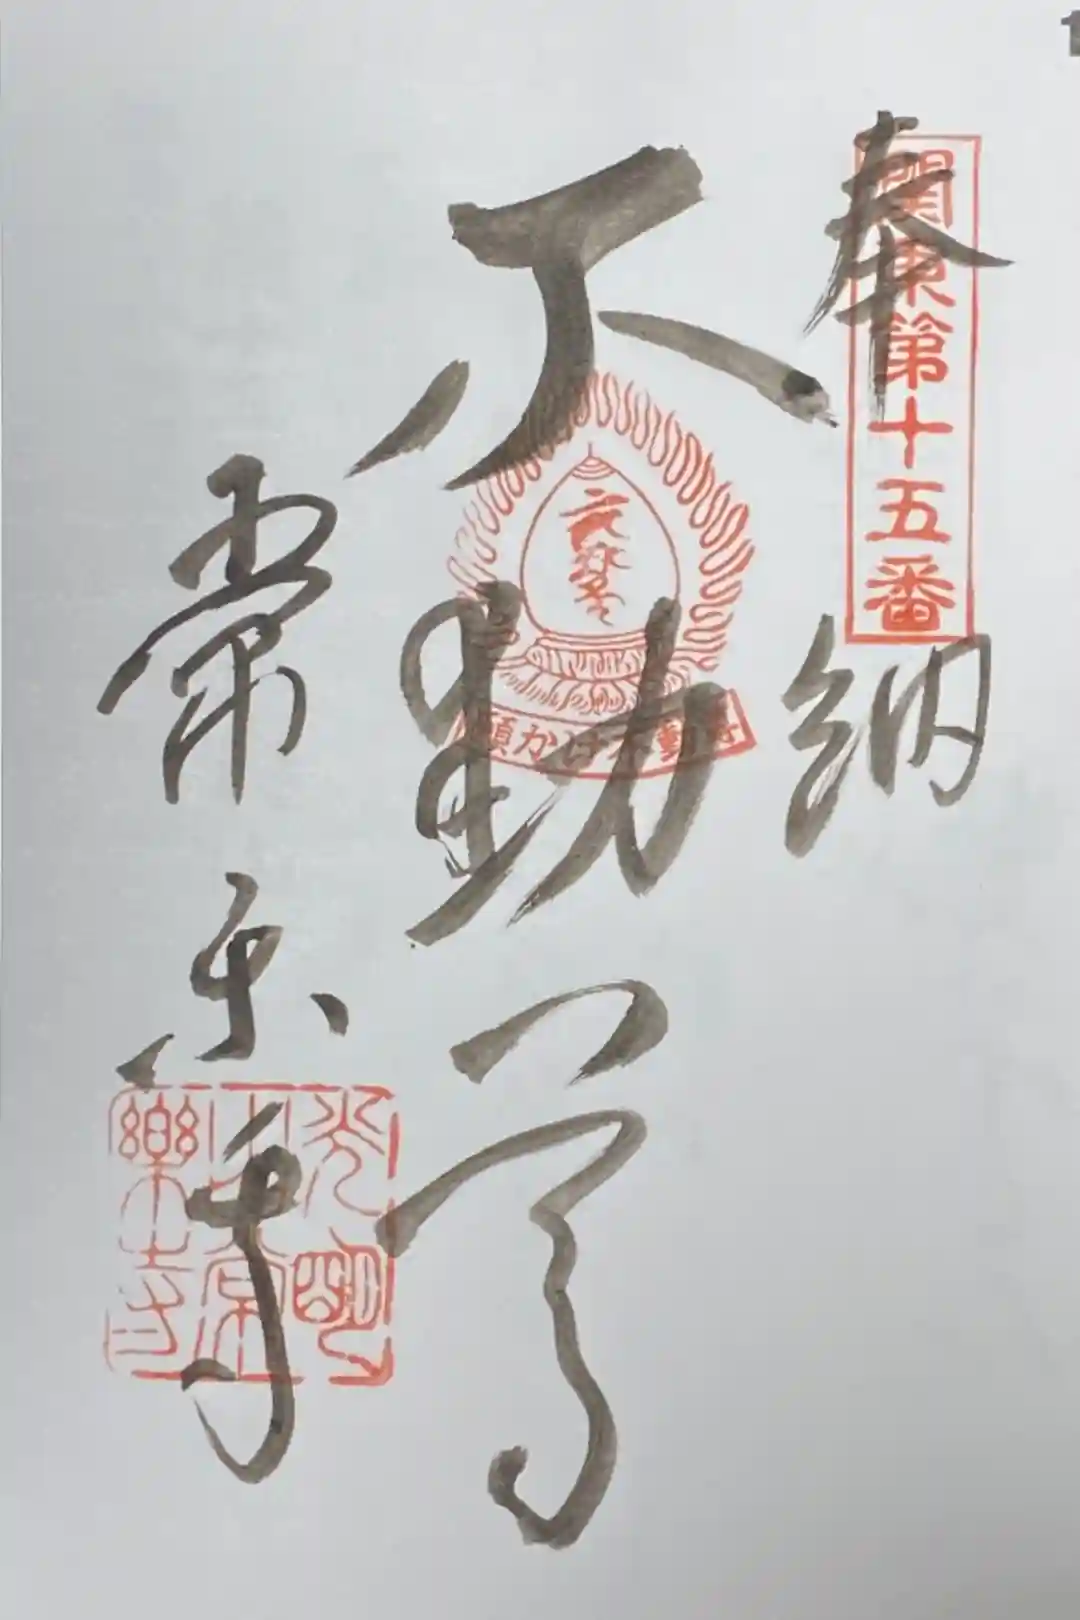 奉納
関東第十五番
不動尊
願かけ不動尊
常楽寺
光明山常楽寺